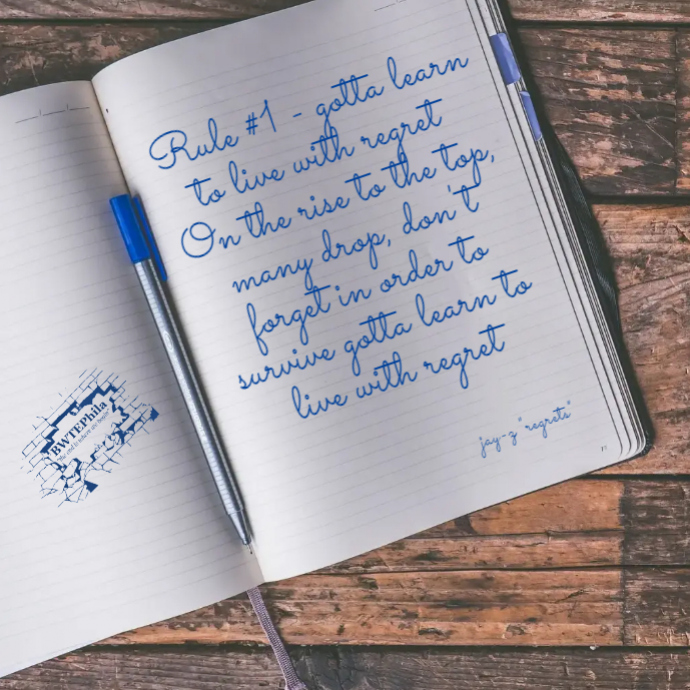 Rule #1 - gotta learn
to live with regret
On the rise to the top,
many drop, don't
forget in order to
survive gotta learn to
live with regret
jay-z "regrets"
BWTEPhila
"the end is where we begin"